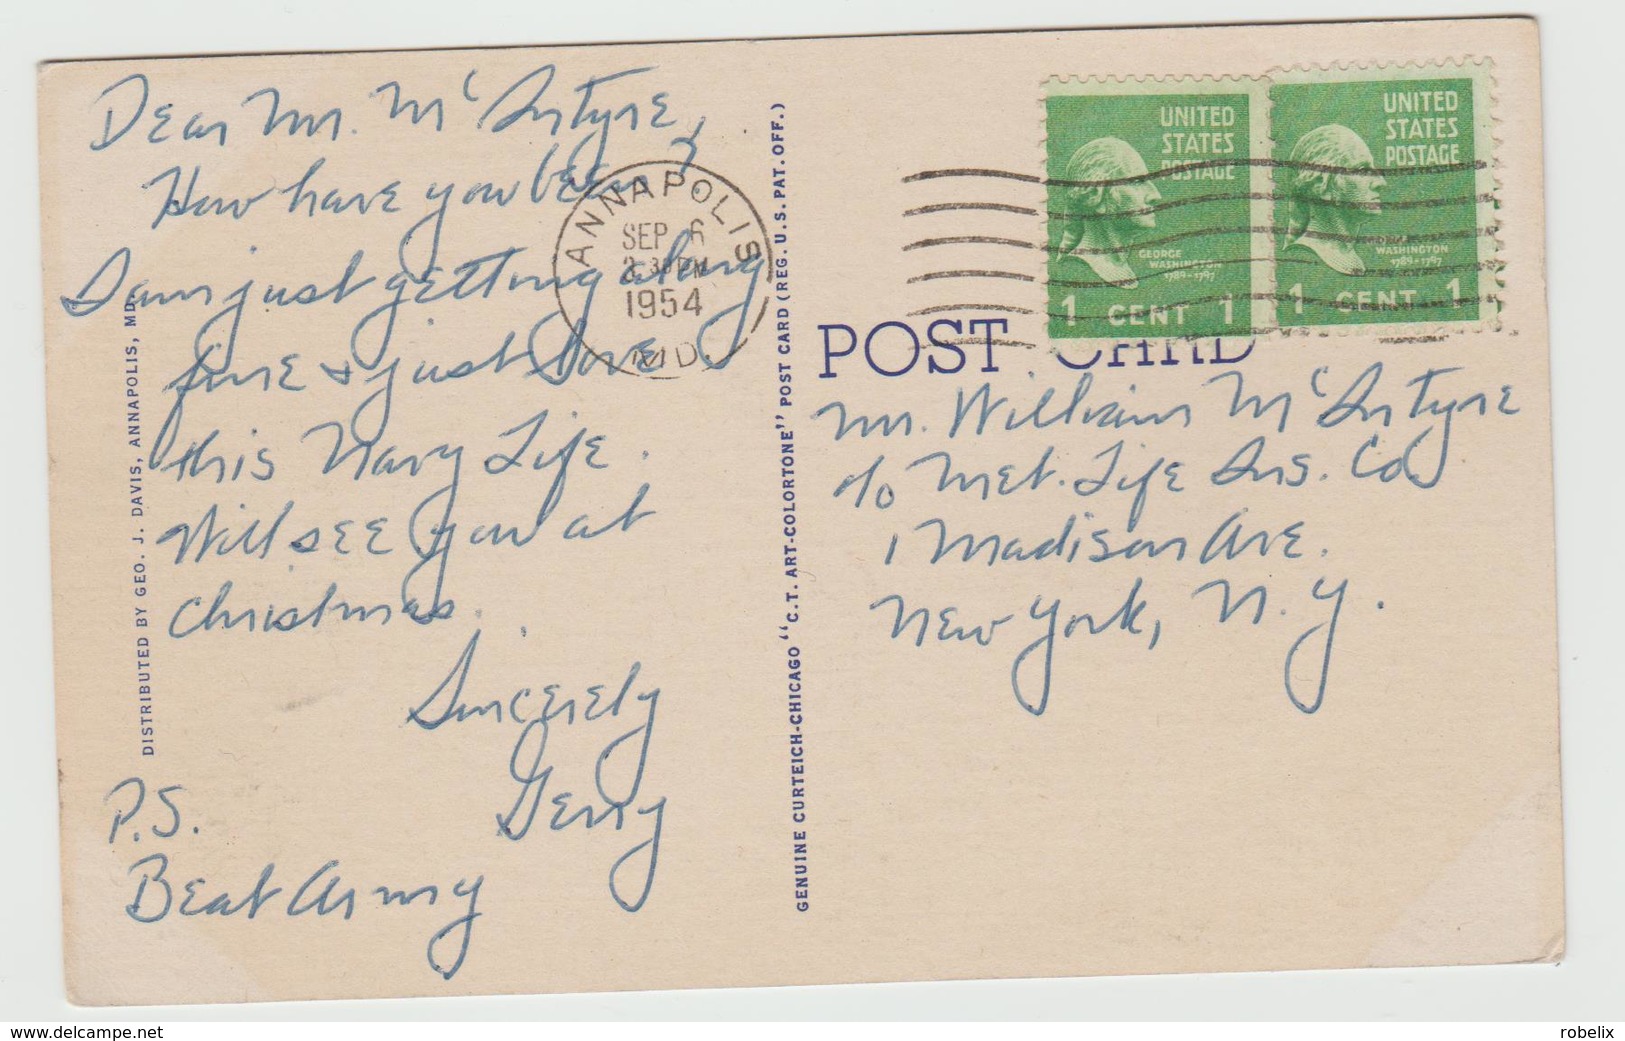 Dear Mr. McIntyre,
How have you been?
I am just getting along
fine & just love
this Navy Life.
Will see you at
Christmas.
Sincerely
Gerry
P.S.
Beat Army
DISTRIBUTED BY GEO. J. DAVIS, ANNAPOLIS, MD.
ANNAPOLIS
SEP 6
30 PM
1954
MD.
GENUINE CURTEICH-CHICAGO "C.T. ART-COLORTONE" POST CARD (REG. U.S. PAT. OFF.)
UNITED
STATES
POSTAGE
GEORGE
WASHINGTON
1789-1797
1 CENT 1
UNITED
STATES
POSTAGE
GEORGE
WASHINGTON
1789-1797
1 CENT 1
POST CARD
Mr. William McIntyre
c/o Met. Life Ins. Co.
1 Madison Ave.
New York, N.Y.
delcampe.net
robelix